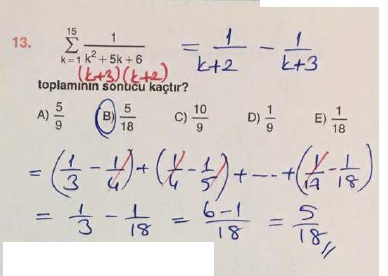 13. \sum_{k=1}^{15} \frac{1}{k^2+5k+6} = \frac{1}{k+2} - \frac{1}{k+3}
(k+3)(k+2)
toplamının sonucu kaçtır?
A) \frac{5}{9} B) \frac{5}{18} C) \frac{10}{9} D) \frac{1}{9} E) \frac{1}{18}
= (\frac{1}{3} - \frac{1}{4}) + (\frac{1}{4} - \frac{1}{5}) + --- + (\frac{1}{17} - \frac{1}{18})
= \frac{1}{3} - \frac{1}{18} = \frac{6-1}{18} = \frac{5}{18} //